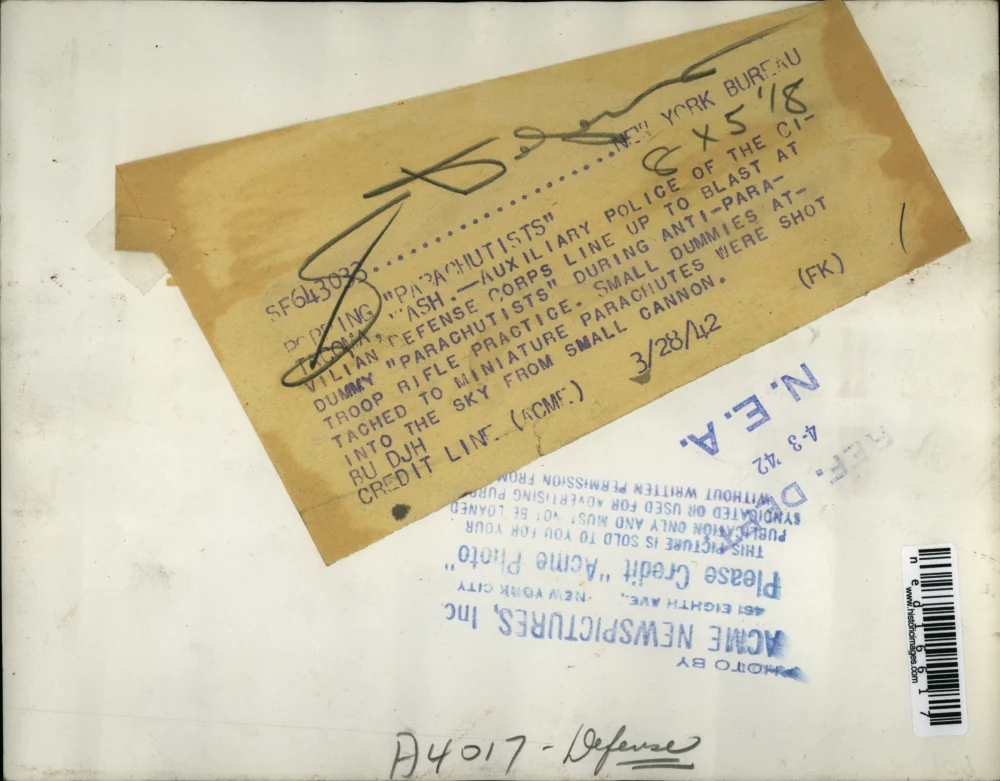 NEW YORK BUREAU
6 X 5 '18
SF643033
"PARACHUTISTS"
TACOMA, WASH.—AUXILIARY POLICE OF THE CI-
VILIAN DEFENSE CORPS LINE UP TO BLAST AT
DUMMY "PARACHUTISTS" DURING ANTI-PARA-
TROOP RIFLE PRACTICE. SMALL DUMMIES AT-
TACHED TO MINIATURE PARACHUTES WERE SHOT
INTO THE SKY FROM SMALL CANNON.
BU DJH (FK)
CREDIT LINE (ACME) 3/28/42
N.E.A.
4-3 '42
REF. DEPT
PHOTO BY
ACME NEWSPICTURES, Inc
461 EIGHTH AVE., NEW YORK CITY
Please Credit "Acme Photo"
THIS PICTURE IS SOLD TO YOU FOR YOUR
PUBLICATION ONLY AND MUST NOT BE LOANED
SYNDICATED OR USED FOR ADVERTISING
WITHOUT WRITTEN PERMISSION FROM
ned16617
www.historicimages.com
A4017 - Defense